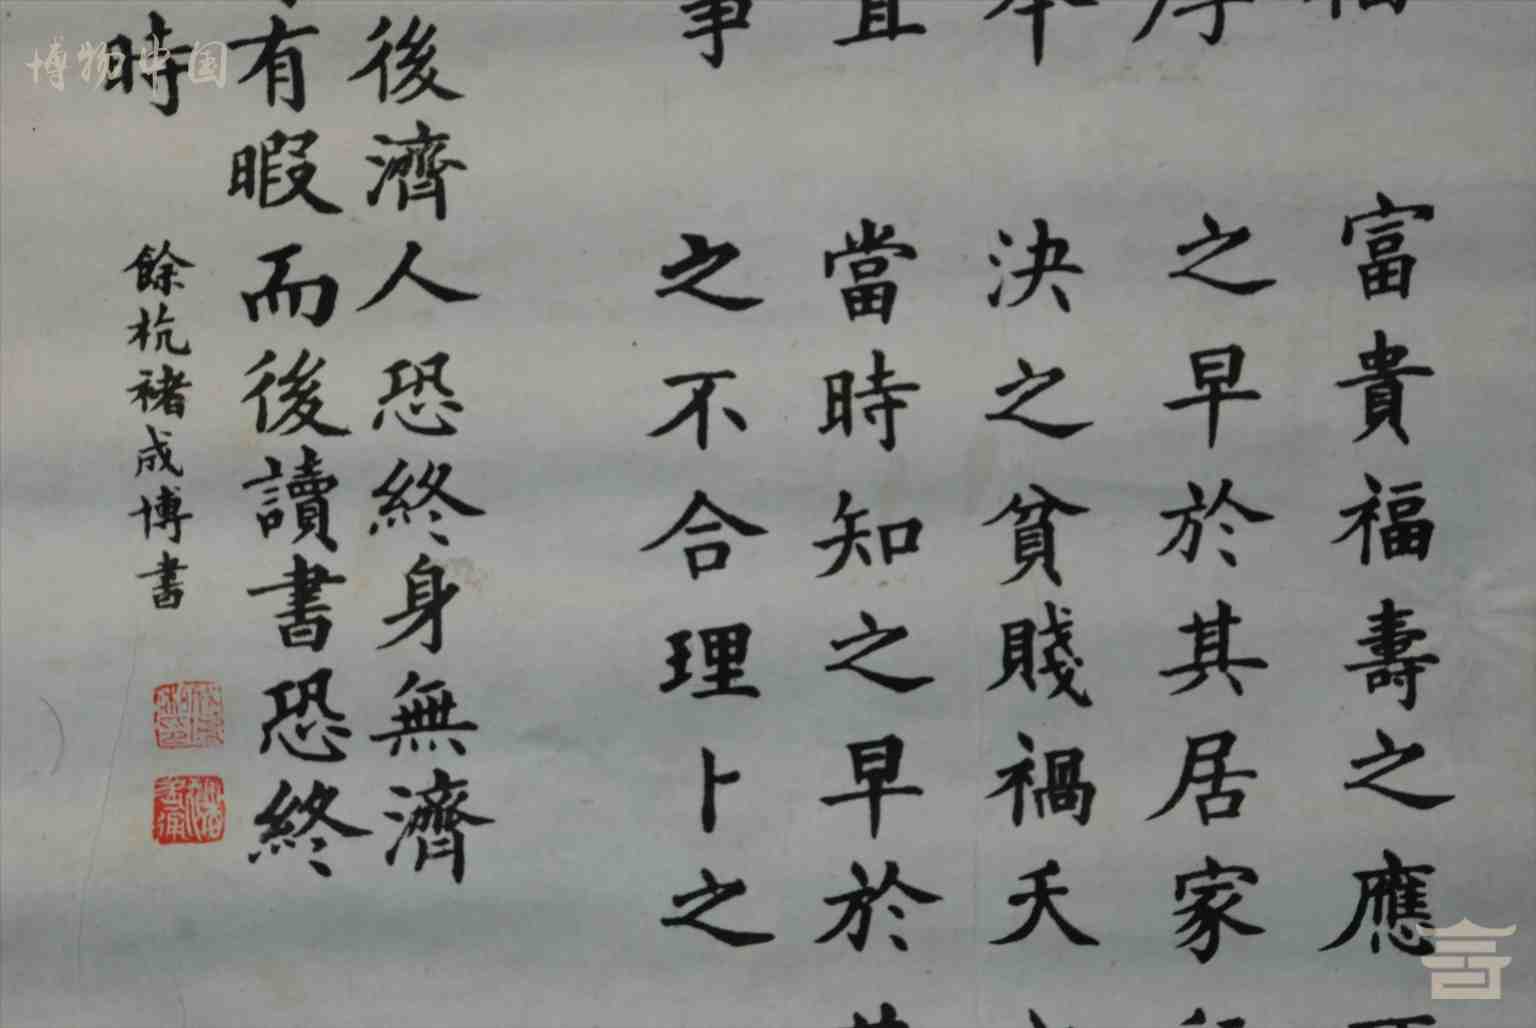 富貴福壽之應
之早於其居家
決之貧賤禍夭
當時知之早於
事之不合理卜之
後濟人恐終身無濟
有暇而後讀書恐終
時
餘杭褚成博書
博物中国